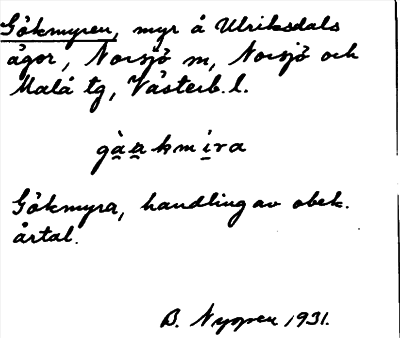 Gökmyren, myr å Ulriksdals
ägor, Norsjö sn, Norsjö och
Malå tg, Västerb. l.
gàa̰kmíra
Gökmyra, handling av obek.
årtal.
B. Nyman 1931.